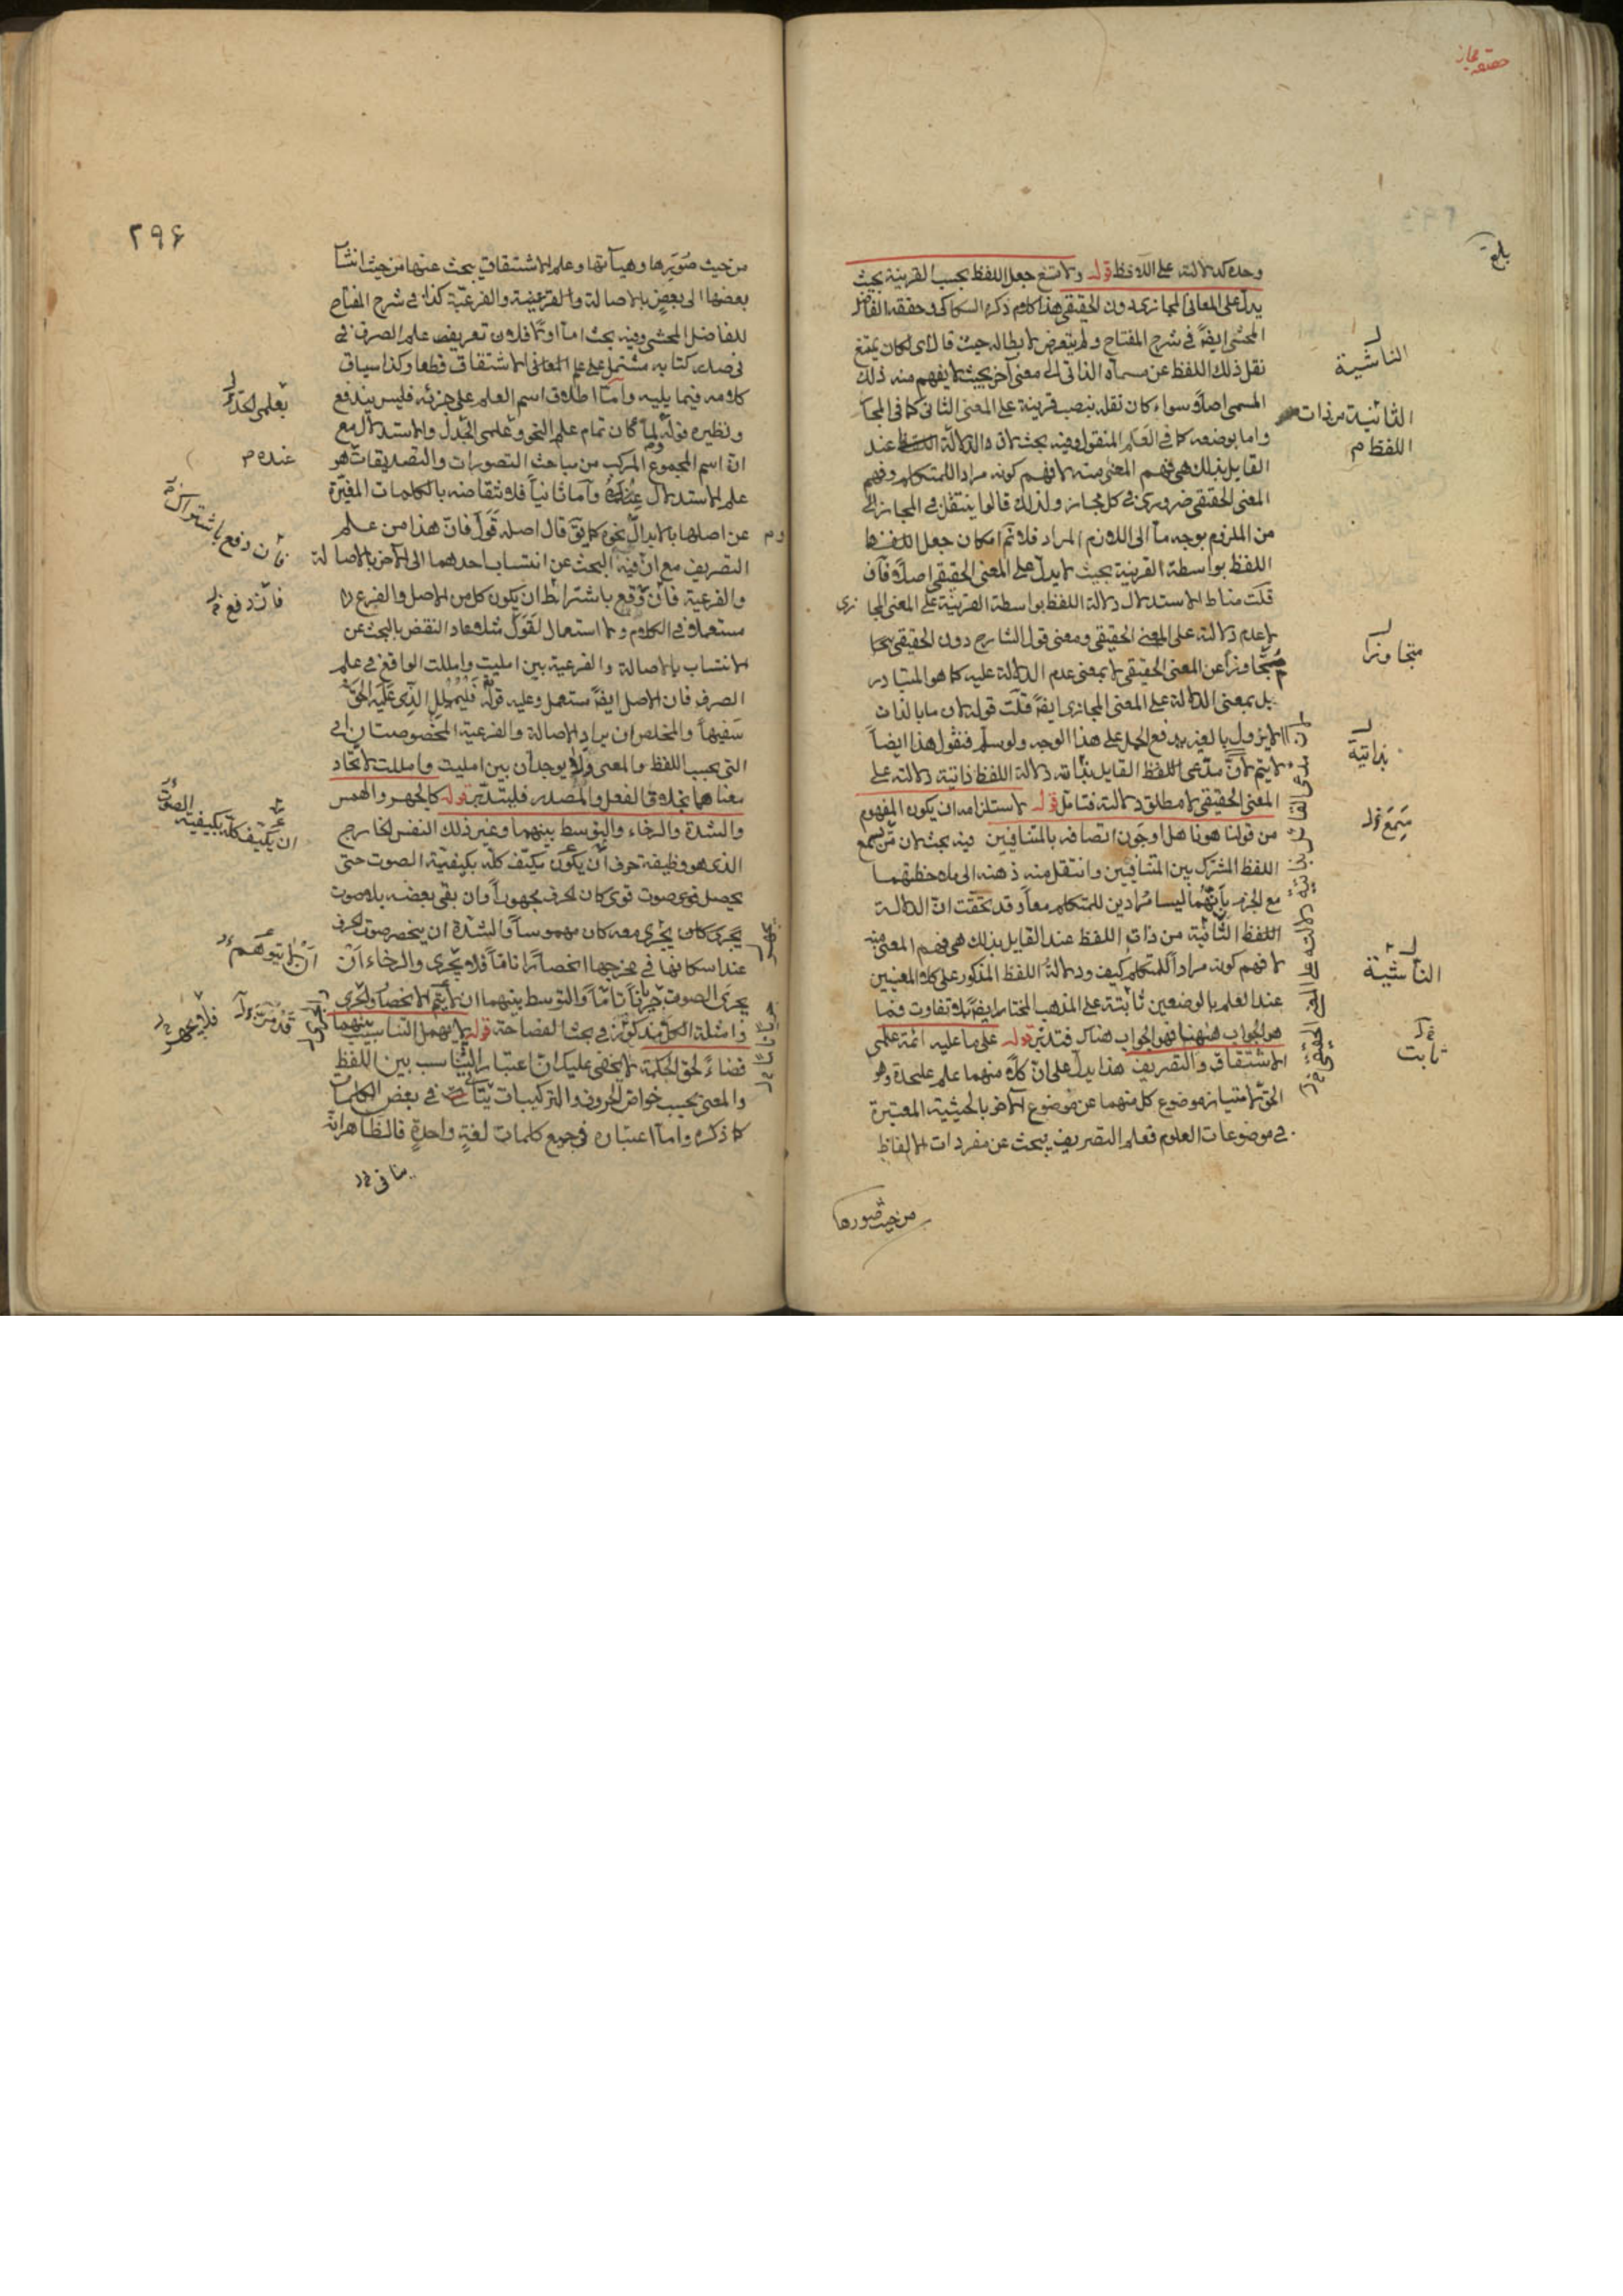 حقيقة مجاز
بلغ
وحده كدلالته على اللافظ قوله ولامتنع جعل اللفظ بحسب القرينة بحيث
يدل على المعانى المجازى دون الحقيقى هذا كلام ذكره السكاكى وحققه الفاضل
المحشى ايضا فى شرح المفتاح ولم يتعرض لابطاله حيث قال اى لكان يمتنع
نقل ذلك اللفظ عن مسماه الذاتى الى معنى آخر بحيث لا يفهم منه ذلك
المسمى اصلا سواء كان نقله بنصب قرينة على المعنى الثانى كما فى المجاز
واما بوضعه كما فى العلم المنقول وفيه بحث لان الدلالة عند
القايل بذلك هى فهم المعنى منه لا فهم كونه مرادا للمتكلم وفهم
المعنى الحقيقى ضرورى فى كل مجاز ولذلك قالوا ينتقل فى المجاز الى
من الملزوم بوجه ما الى اللازم المراد فلا تم امكان جعل
اللفظ بواسطة القرينة بحيث لا يدل على المعنى الحقيقى اصلا فان
قلت مناط الاستدلال دلالة اللفظ بواسطة القرينة على المعنى المجازى
لا عدم دلالته على المعنى الحقيقى ومعنى قول الشارح دون الحقيقى
متجاوزا عن المعنى الحقيقى لا بمعنى عدم الدلالة عليه كما هو المتبادر
بل بمعنى الدلالة على المعنى المجازى ايضا قلت قوله لان ما بالذات
لا يزول بالغير يدفع الحمل على هذا الوجه ولو سلم فنقول هذا ايضا
لا يتم لان مدعى اللفظ القايل بذاته دلالة اللفظ ذاتية دلالته على
المعنى الحقيقى لا مطلق دلالته فتامل قوله لاستلزامه ان يكون المفهوم
من قولنا هو ناهل او جون اتصافه بالمتنافيين فيه بحث لان من سمع
اللفظ المشترك بين المتنافيين وانتقل منه ذهنه الى ملاحظتهما
مع الجزم بانهما ليسا مرادين للمتكلم معا وقد تحققت ان الدلالة
اللفظ الثانية من ذات اللفظ عند القايل بذلك هى فهم المعنى منه
لا فهم كونه مرادا للمتكلم كيف ودلالة اللفظ المذكور على كلا المعنيين
عند العلم بالوضعين ثابتة على المذهب المختار ايضا بلا تفاوت فما
هو الجواب ههنا فهو الجواب هناك فتدبر قوله على ما عليه ائمة علمى
الاشتقاق والتصريف هذا يدل على ان كلا منهما علم عليحدة وهو
الحق لامتياز موضوع كل منهما عن موضوع الآخر بالحيثية المعتبرة
فى موضوعات العلوم فعلم التصريف يبحث عن مفردات الالفاظ
من حيث صورها
الناشية
الثانية من ذات
اللفظ م
متجاوزا
بذاتية
سمع
الناشية
ثابت
٢٩٤
من حيث صورها وهيآتها وعلم الاشتقاق يبحث عنها من حيث انتساب
بعضها الى بعض بالاصالة والفرعية كذا فى شرح المفتاح
للفاضل المحشى وفيه بحث اما اولا فلان تعريف علم الصرف فى
فى صدر كتابه مشتمل على علم الاشتقاق قطعا وكذا سياق
كلامه فيما يليه واما اطلاق اسم العلم على جزئه فليس يندفع
ونظيره قوله لما كان تمام علم النحو وعلمى الجدل والاستدلال مع
ان اسم المجموع المركب من مباحث التصورات والتصديقات هو
علم الاستدلال عنده واما ثانيا فلانتقاضه بالكلمات المغيرة
عن اصلها بالابدال نحو كما يق قال اصله قول فان هذا من علم
التصريف مع ان فيه البحث عن انتساب احدهما الى الآخر بالاصالة
والفرعية فان دفع باشتراط ان يكون كل من الاصل والفرع
مستعملا فى الكلام ولا استعمال لقول مثلا عاد النقض بالبحث عن
الانتساب بالاصالة والفرعية بين امليت وامللت الواقع فى علم
الصرف فان الاصل ايضا مستعمل وعليه قوله فليملل الذى عليه الحق
سفيها والمخلص ان يراد الاصالة والفرعية المخصوصتان اى
التى بحسب اللفظ والمعنى ولا يوجدان بين امليت وامللت لاتحاد
معناهما بخلاف الفعل والمصدر فليتدبر قوله كالجهر والهمس
والشدة والرخاء والتوسط بينهما وغير ذلك النفس الخارج
الذى هو وظيفة حرف ان يكون يكيف كله بكيفية الصوت حتى
يحصل فوى صوت قوى كان الحرف مجهورا وان بقى بعضه بلا صوت
يجرى معه كان مهموسا والشدة ان ينحصر صوت الحرف
عند اسكانها فى مخرجها انحصارا تاما فلا يجرى والرخاء ان
يجرى الصوت جريانا تاما والتوسط بينهما ان لا يتم الانحصار والجرى
وامثلة الكل مذكورة فى بحث الفصاحة قوله لا يهمل التناسب بينهما
قضاء لحق الحكمة لا يخفى عليك ان اعتبار التناسب بين اللفظ
والمعنى بحسب خواص الحروف والتركيبات يتأتى فى بعض الكلمات
كما ذكره واما اعتباره فى جميع كلمات لغة واحدة فالظاهر انه
بعلمى الجدل
عنده م
فان دفع باشتراك
فان دفع
ان يكيف كله بكيفية الصوت